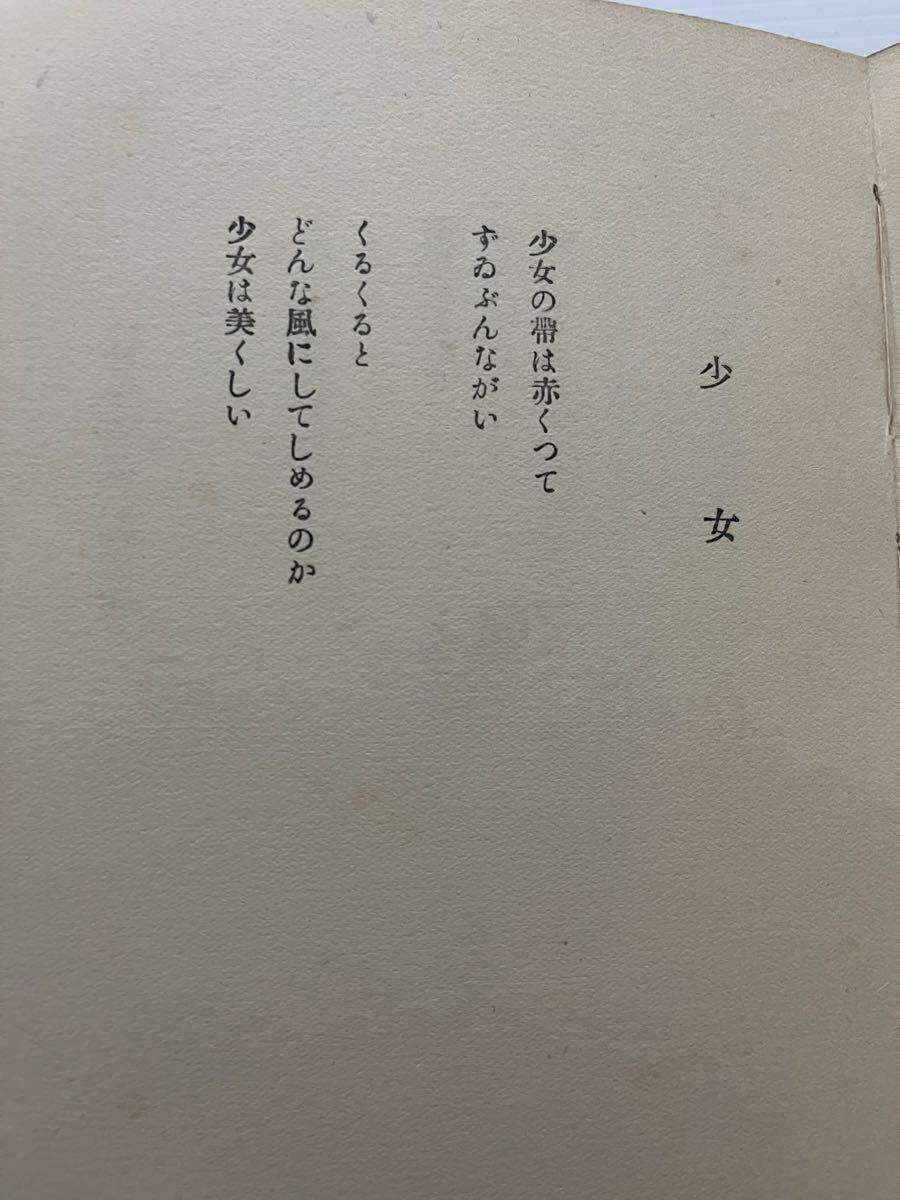 少女
少女の帶は赤くつて
ずゐぶんながい
くるくると
どんな風にしてしめるのか
少女は美くしい